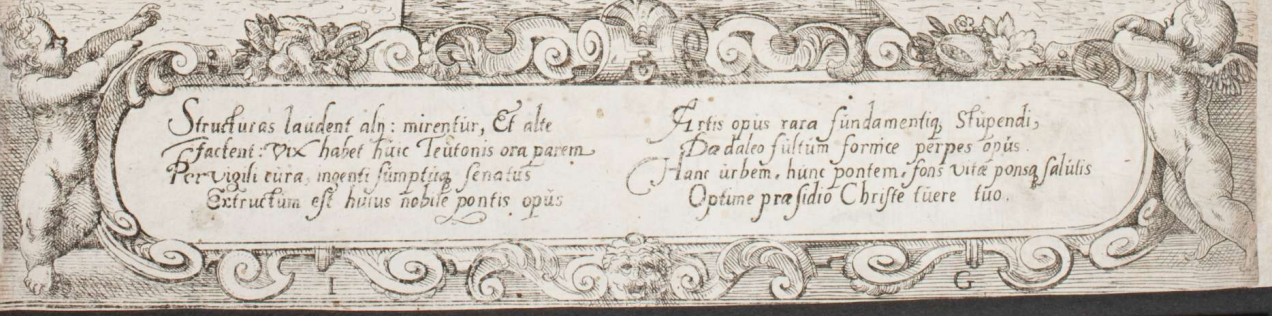 Structuras laudent alij: mirentur, Et alte
Jactent: Vix habet huic Teutonis ora parem
Pervigili cura, ingenti sumptuq, senatus
Extructum est huius nobile pontis opus
Artis opus rara fundamentiq, Stupendi,
Dædaleo fultum fornice perpes opus.
Hanc urbem, hunc pontem, fons vitæ ponsq, salutis
Optime præsidio Christe tuere tuo.
I G